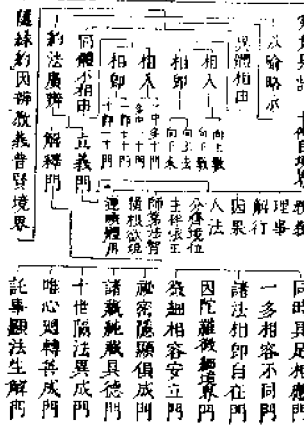 以喻略示
異體相由
相入
向上數
向下數
相即
向上去
向下來
同體不相由
相入
一中多十門
多中一十門
相即
一即十十門
十即一十門
約法廣辨
立義門
解釋門
隨緣約因辨教義普賢境界
教義
理事
解行
因果
人法
分齊境位
師弟法智
主伴依正
隨根欲現
逆順體用
同時具足相應門
一多相容不同門
諸法相即自在門
因陀羅微細境界門
微細相容安立門
祕密隱顯俱成門
諸藏純雜具德門
十世隔法異成門
唯心迴轉善成門
託事顯法生解門